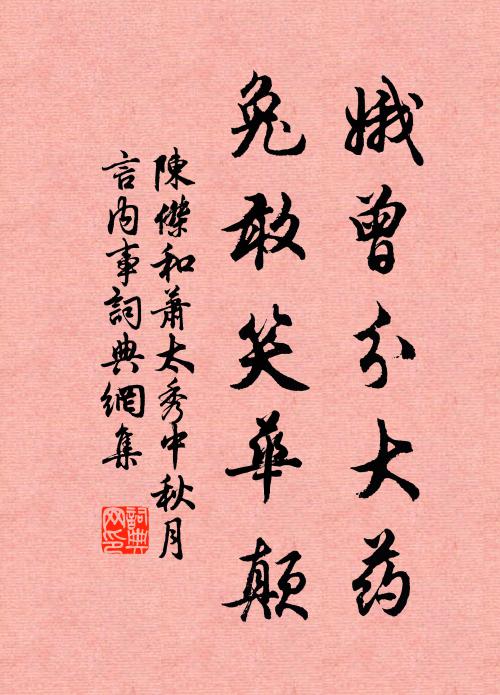 娥曾分大药
兔敢笑華顛
陳傑和蕭太秀中秋月
言内事詞典網集
詞典网印